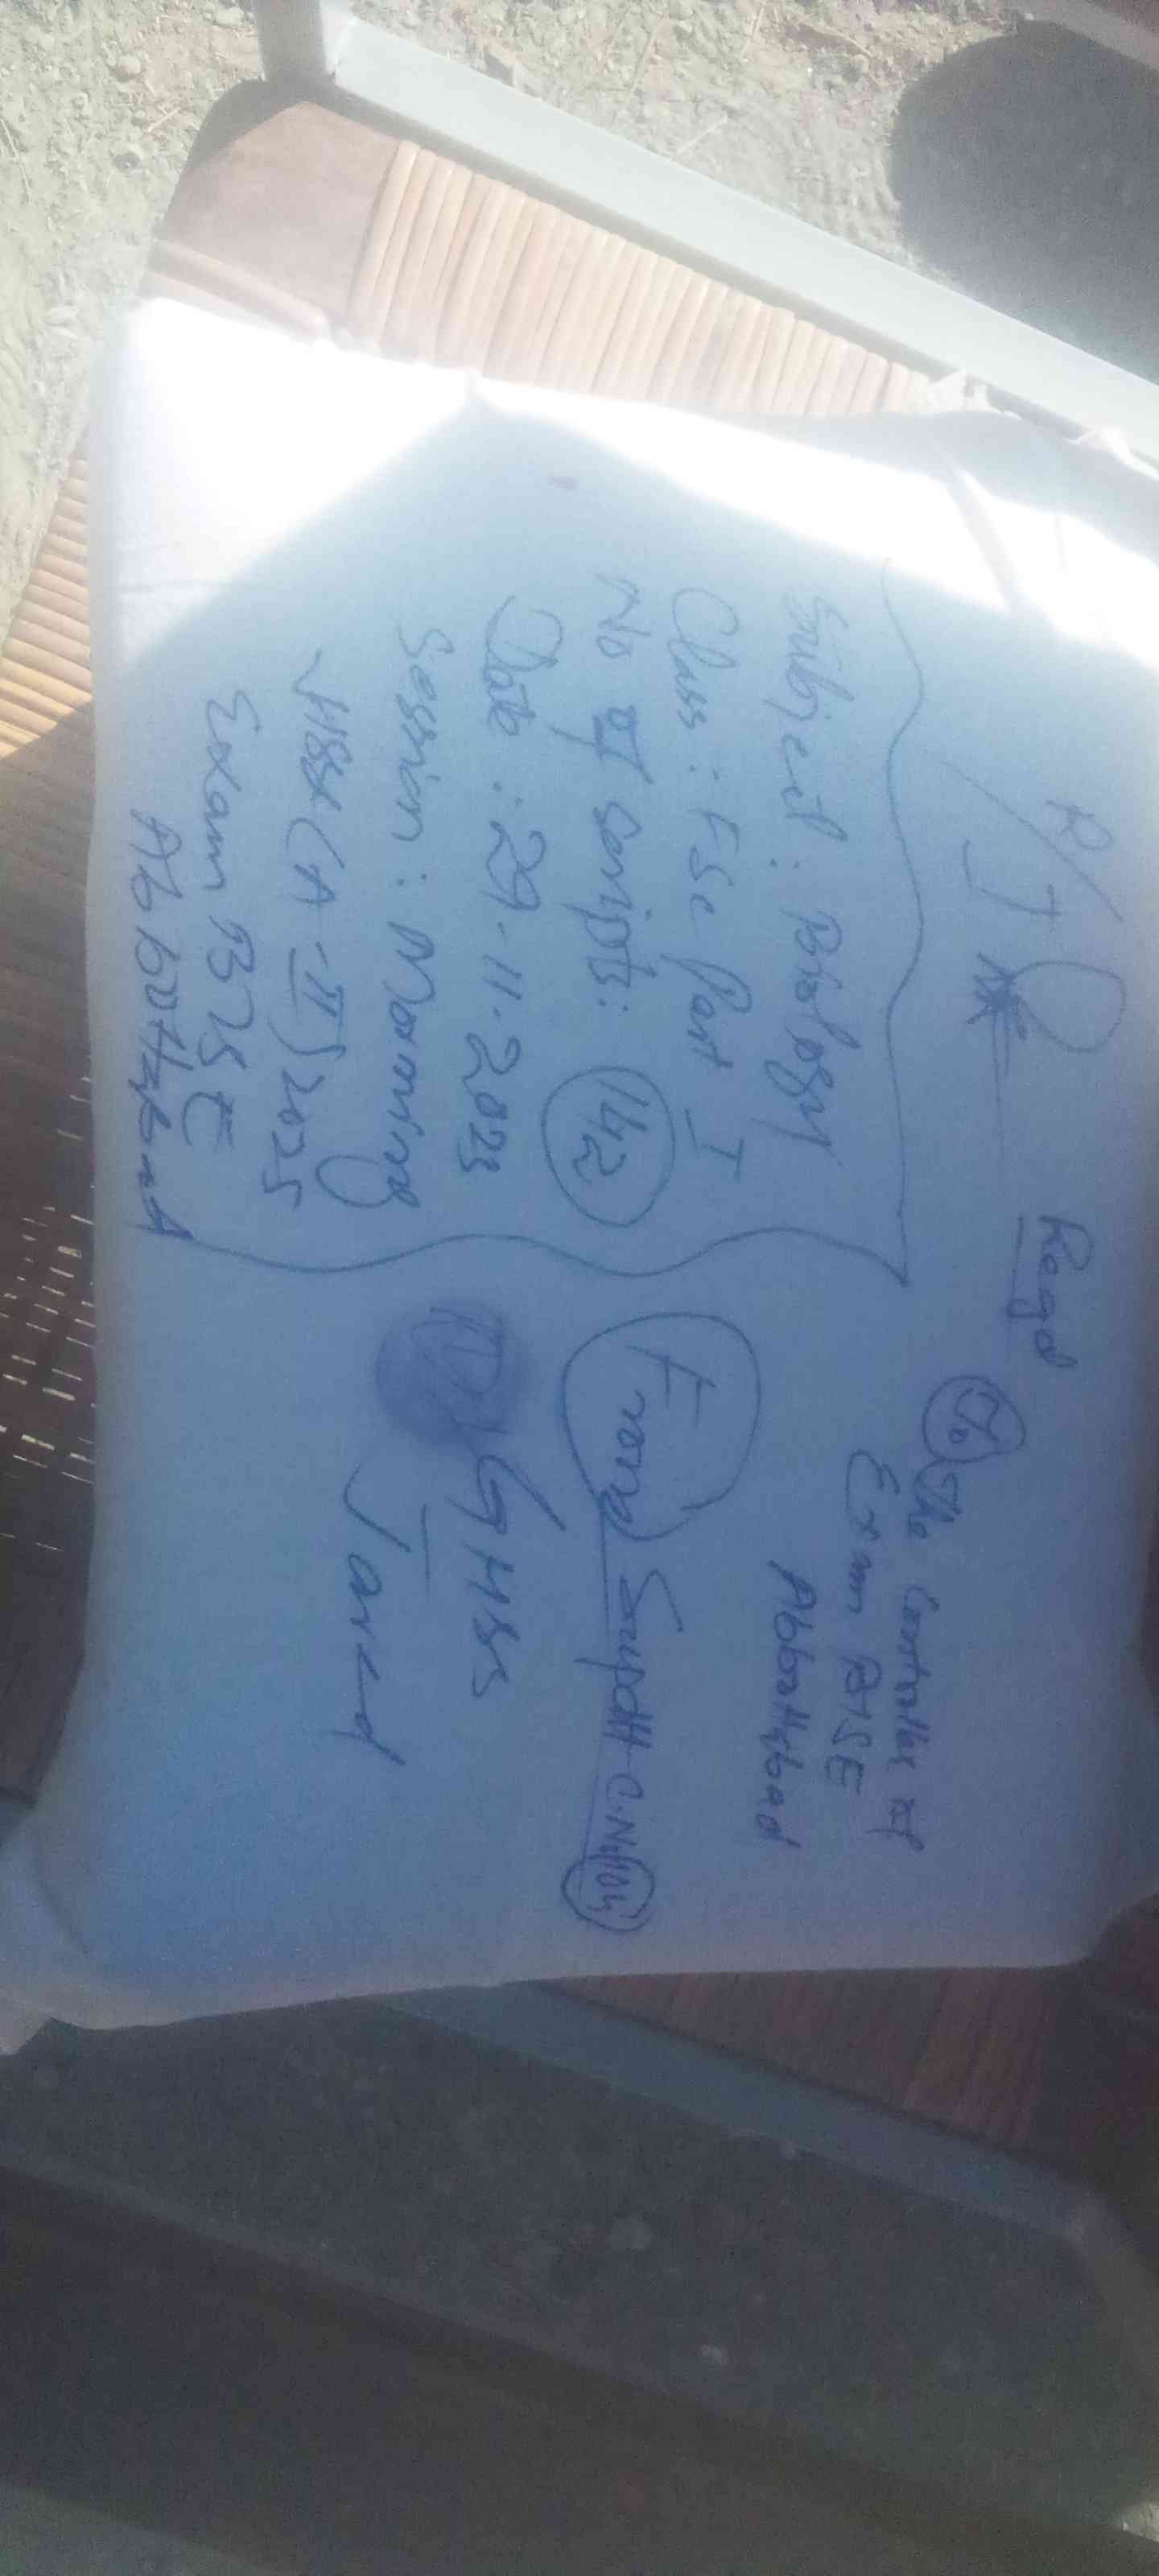 Regd
Subject: Biology
Class: FSc Part I
No of scripts: 142
Date: 29.11.2025
Session: Morning
HSSC (A-II) 2025
Exam BISE
Abbottabad
To The Controller of
Exam BISE
Abbottabad
From Supdtt C.No
GHSS